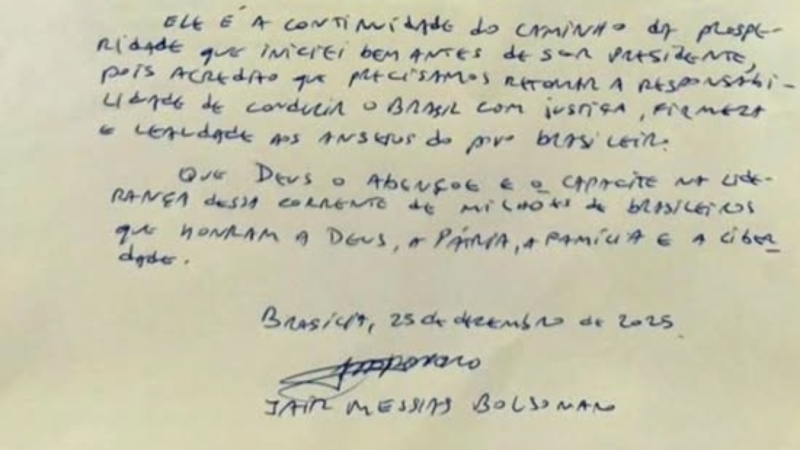 ELE É A CONTINUIDADE DO CAMINHO DA PROSPE-
RIDADE QUE INICIEI BEM ANTES DE SER PRESIDENTE,
POIS ACREDITO QUE PRECISAMOS RETOMAR A RESPONSABI-
LIDADE DE CONDUZIR O BRASIL COM JUSTIÇA, FIRMEZA
E LEALDADE AOS ANSEIOS DO POVO BRASILEIRO.
QUE DEUS O ABENÇOE E O CAPACITE NA LIDE-
RANÇA DESSA CORRENTE DE MILHÕES DE BRASILEIROS
QUE HONRAM A DEUS, A PÁTRIA, A FAMÍLIA E A LIBER
DADE.
BRASÍLIA, 25 DE DEZEMBRO DE 2025.
JAIR MESSIAS BOLSONARO